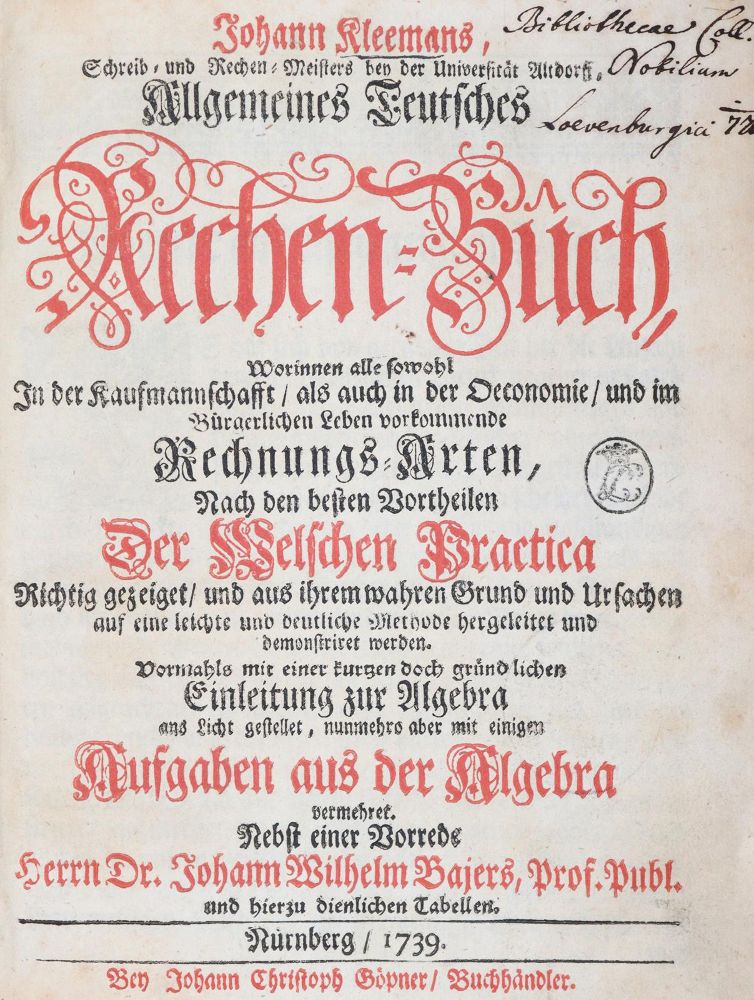 Johann Kleemans,
Schreib- und Rechen-Meisters bey der Universität Altdorff,
Allgemeines Teutsches
Bibliothecae Coll.
Nobilium
Loevenburgici
Rechen-Buch,
Worinnen alle sowohl
In der Kaufmannschafft / als auch in der Oeconomie / und im
Bürgerlichen Leben vorkommende
Rechnungs-Arten,
Nach den besten Vortheilen
Der Welschen Practica
Richtig gezeiget / und aus ihrem wahren Grund und Ursachen
auf eine leichte und deutliche Methode hergeleitet und
demonstriret werden.
Vormahls mit einer kurtzen doch gründlichen
Einleitung zur Algebra
ans Licht gestellet, nunmehro aber mit einigen
Aufgaben aus der Algebra
vermehret.
Nebst einer Vorrede
Herrn Dr. Johann Wilhelm Bajers, Prof. Publ.
und hierzu dienlichen Tabellen.
Nürnberg / 1739.
Bey Johann Christoph Göpner / Buchhändler.